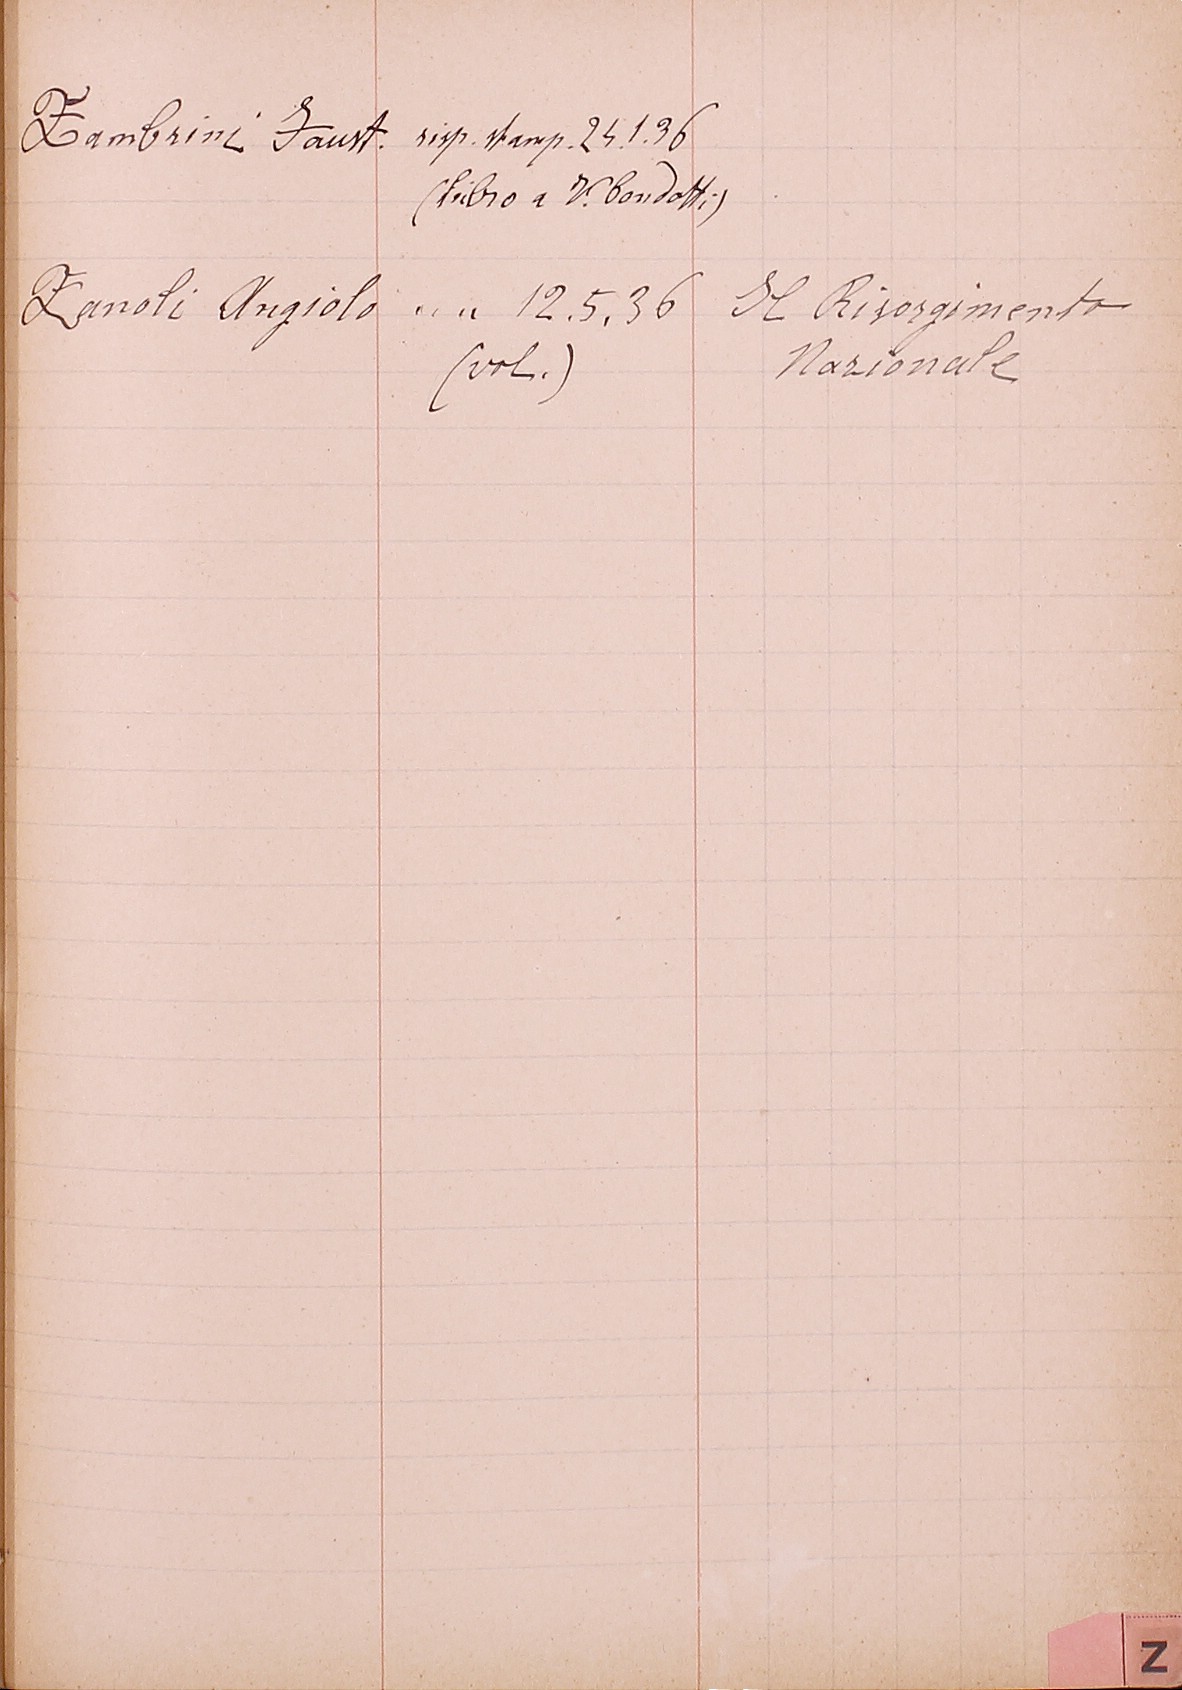 Zambrini Faust. risp. stamp. 24.1.36
(libro a V. Condotti)
Zanoli Angiolo " " 12.5.36 Il Risorgimento
(vol.) Nazionale
Z